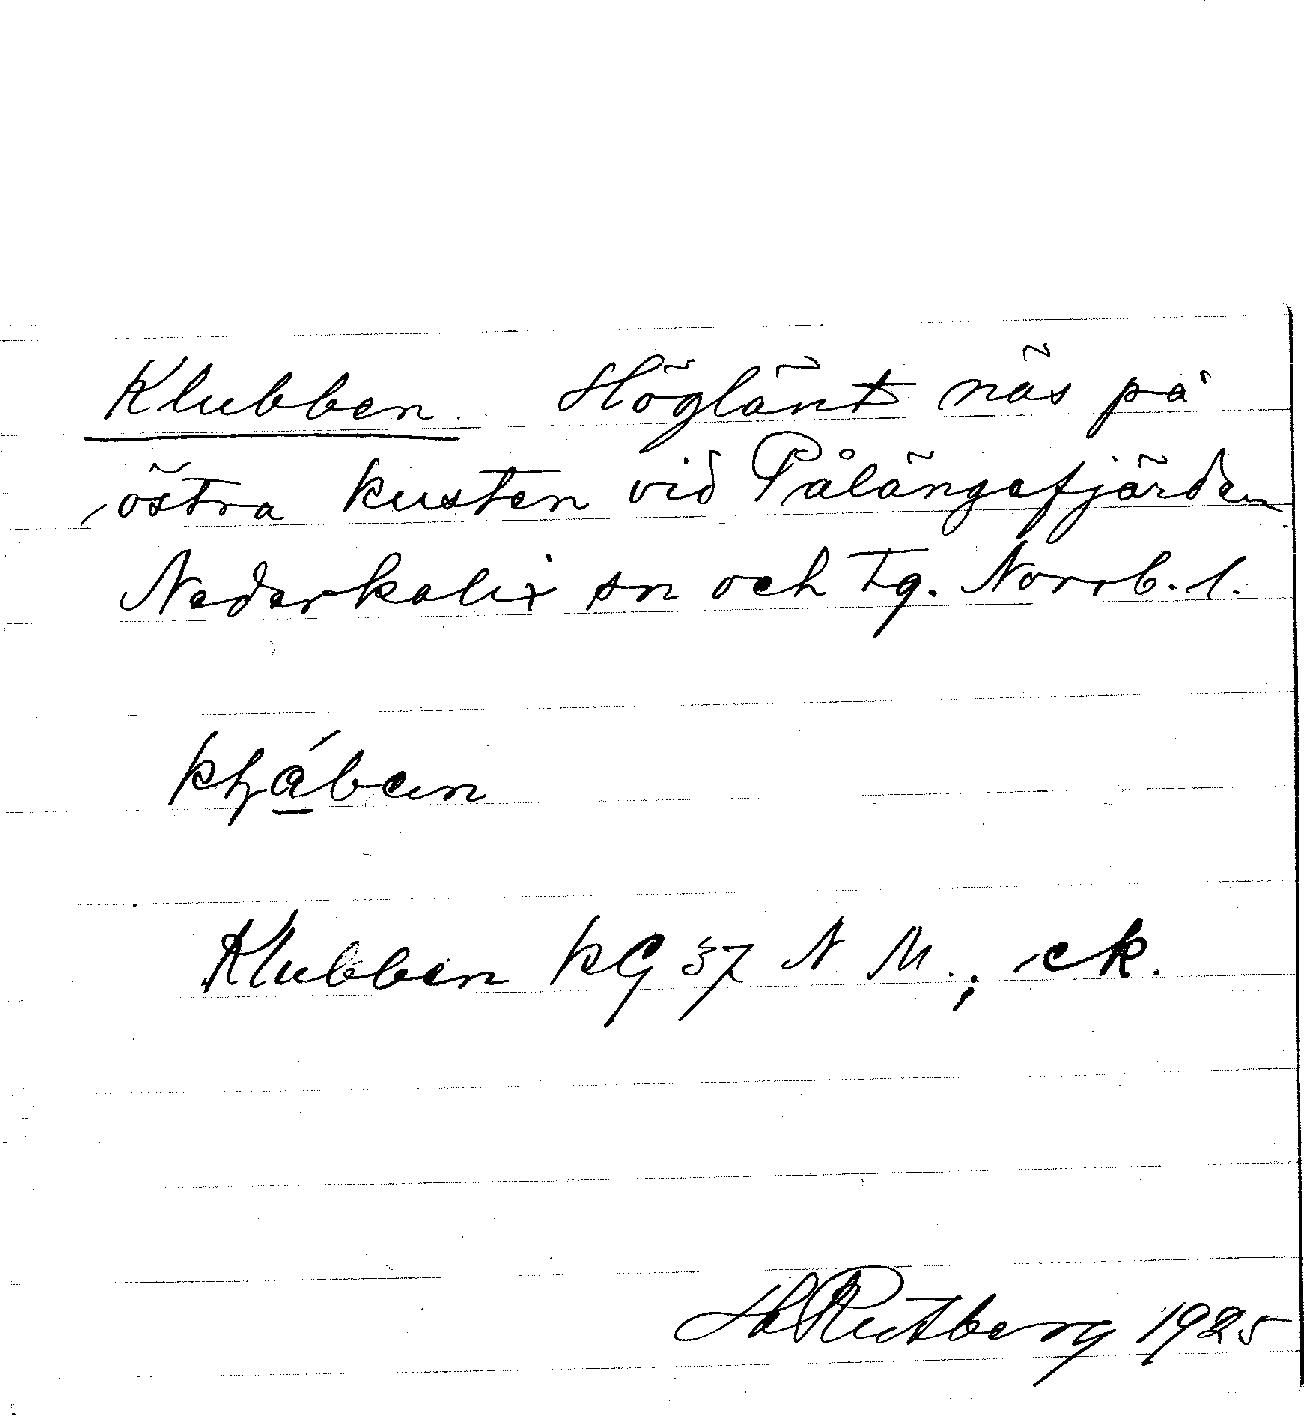 Klubben. Höglänt näs på
östra kusten vid Pålängefjärden
Nederkalix sn och tg. Norrb. l.
Klubben kG 37 N M.; ek.
H Rutberg 1925